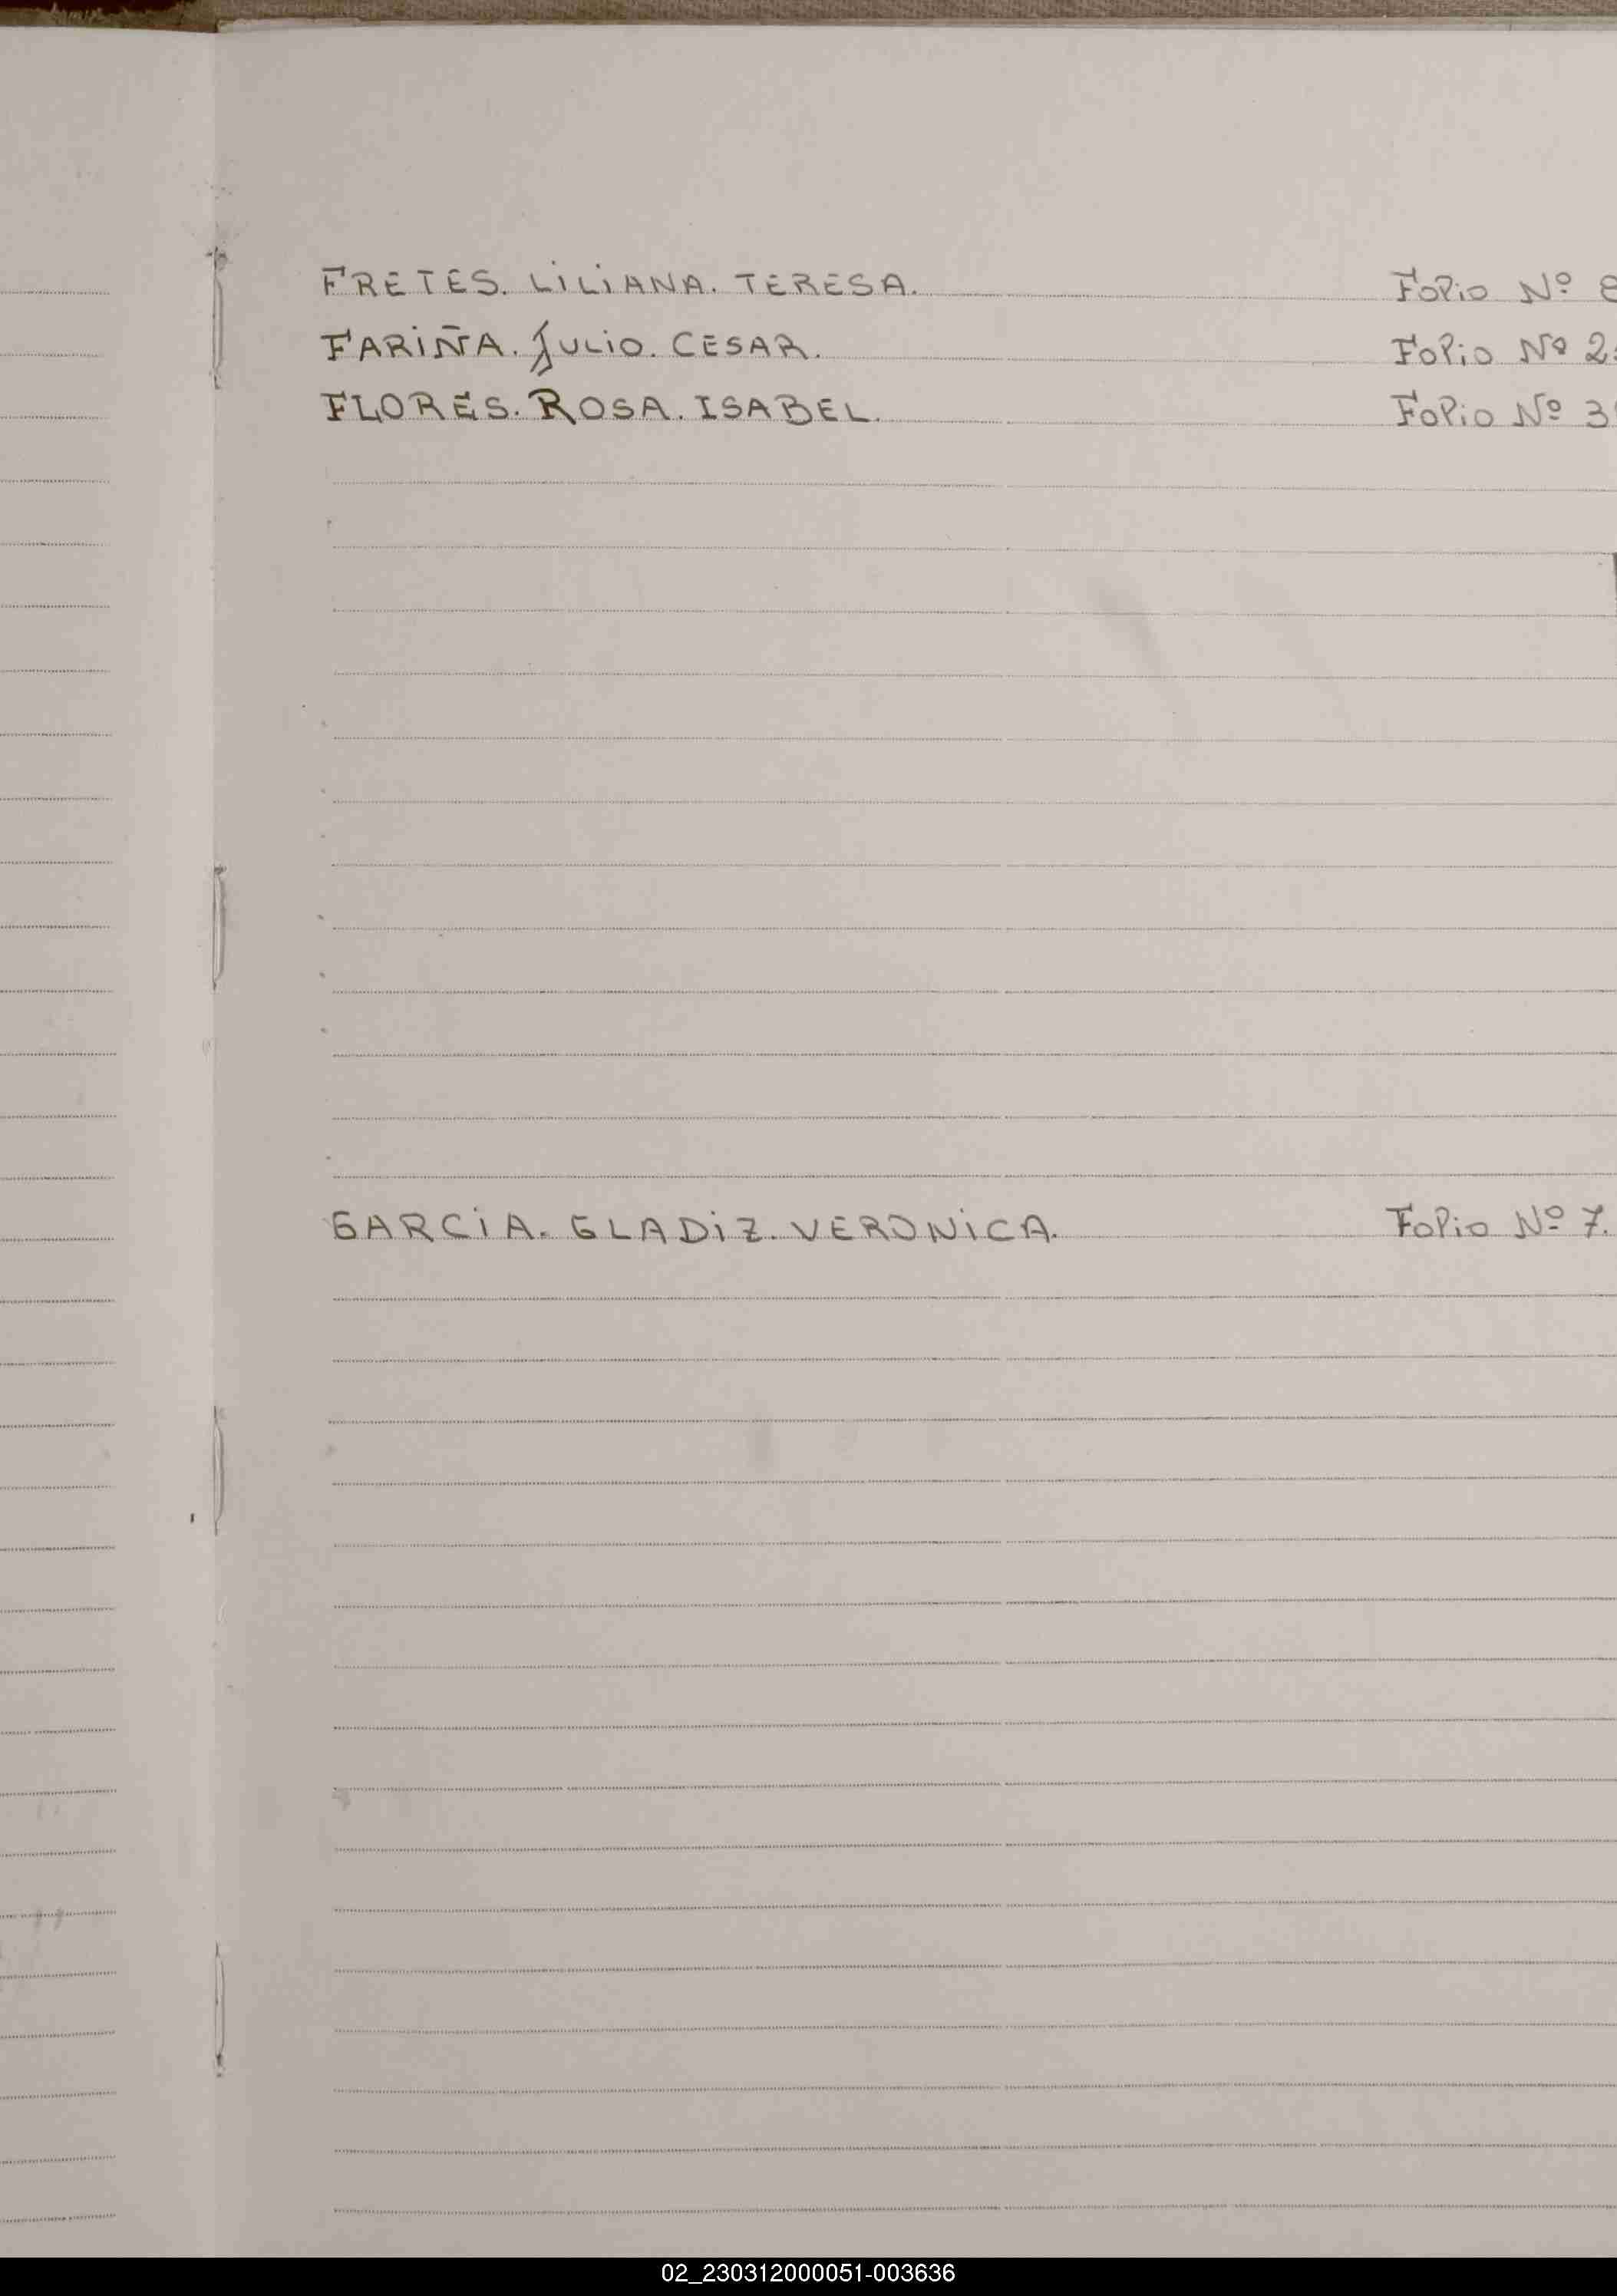 FRETES. LILIANA. TERESA. Folio Nº
FARIÑA. JULIO. CESAR. Folio Nº 2
FLORES. ROSA. ISABEL. Folio Nº 3
GARCIA. GLADIZ. VERONICA. Folio Nº 7.
02_230312000051-003636